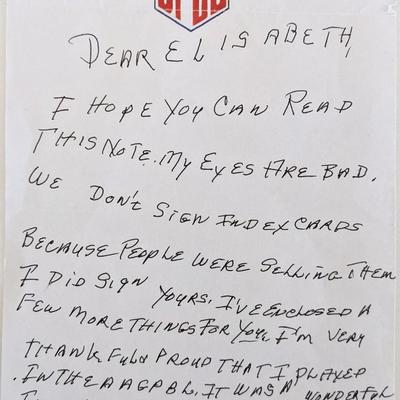 DEAR ELISABETH,
I HOPE YOU CAN READ
THIS NOTE. MY EYES ARE BAD.
WE DON'T SIGN INDEX CARDS
BECAUSE PEOPLE WERE SELLING THEM
I DID SIGN YOURS. I'VE ENCLOSED A
FEW MORE THINGS FOR YOU. I'M VERY
THANKFUL & PROUD THAT I PLAYED
IN THE A A G P B L. IT WAS A WONDERFUL